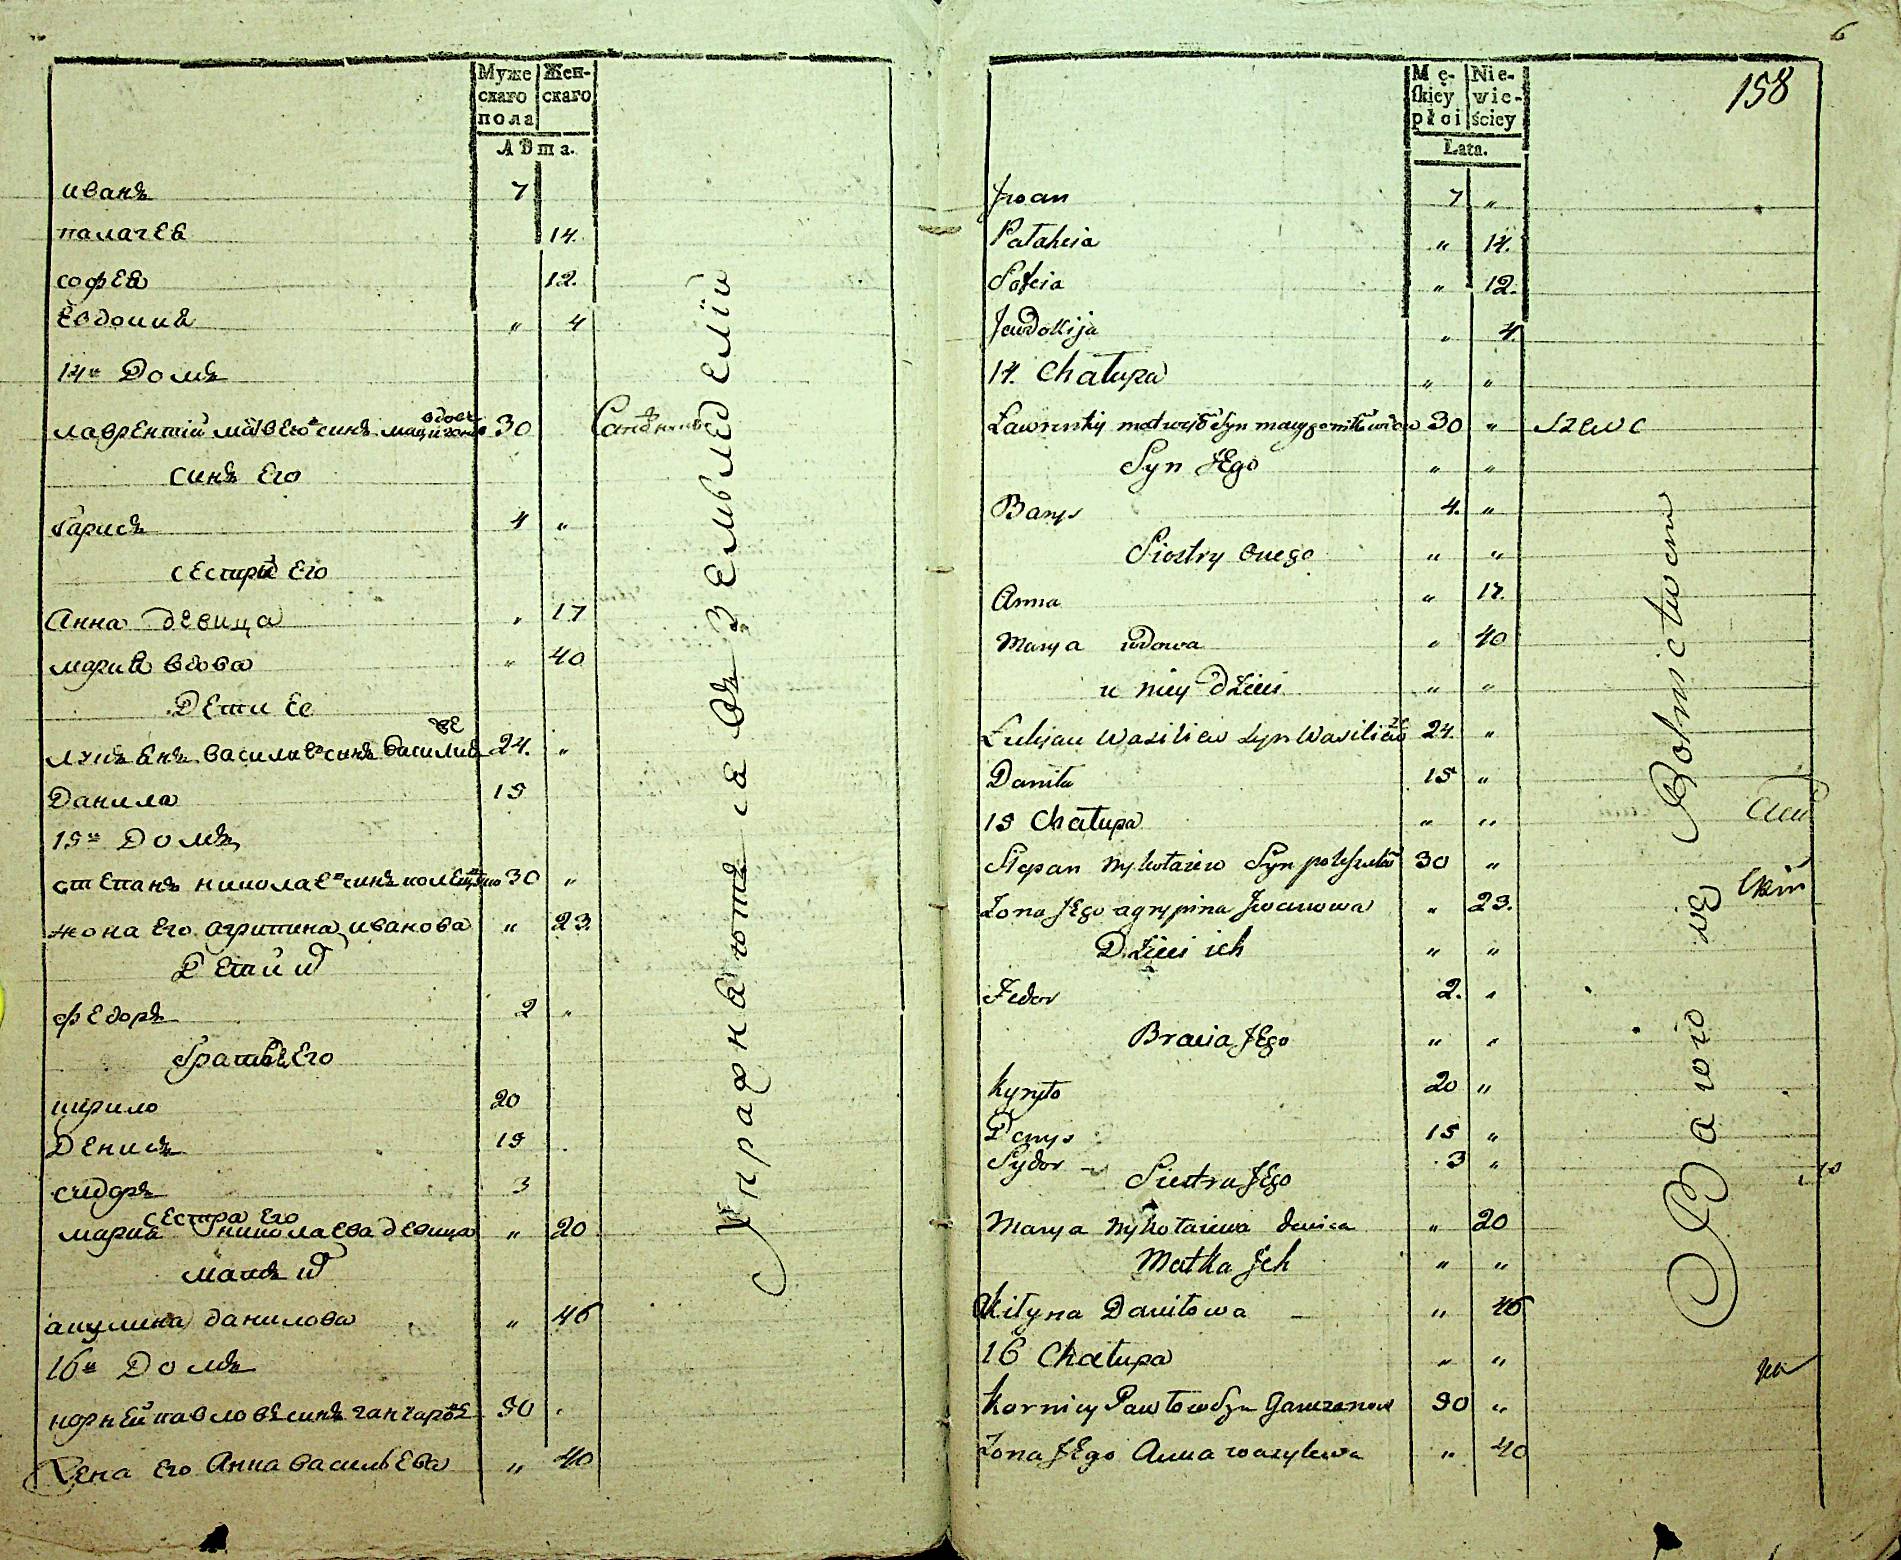 Муже Жен-
скаго скаго
пола
Лѣта.
иванъ 7
палагея 14.
софея 12.
Евдокия " 4
14й Домъ
лаврентий матвеювъ синъ вдовъ 30
синъ Его
барисъ 4 "
сестры Его
Анна девица " 17
мария вдова " 40
Дети Ее
лукьянъ василиевъ синъ 24. "
Данила 15
15й Домъ
степанъ николаевъ синъ 30 "
жона Его агрипина иванова " 23.
Дети их
федоръ 2 "
братья Его
кирило 20
Денисъ 15
сидоръ 3
сестра Его
мария николаева девица " 20
матъ их
акулина данилова " 46
16й Домъ
корней павловъ синъ ганчаровъ 50
жена Его Анна василЬева " 40
Упражняютца въ Земледелїи
6
158
Mę- Nie-
ſkiey wie-
płci ściey
Lata.
Jwan 7 "
Palaheia " 14.
Sofeia " 12.
Jewdokija " 4.
14. Chałupa " "
Ławrentiy matwyiow Syn 30 " szewc
Syn JEgo " "
Barys 4. "
Siostry Onego " "
Anna " 17.
Marya wdowa " 40
u niey Dzieci " "
Łukjan Wasiliew syn 24. "
Daniła 15 "
15 Chałupa " "
Stepan Nykołaiew Syn 30 "
Żona JEgo agrypina Jwanowa " 23.
Dzieci ich " "
Fedor 2. "
Bracia JEgo " "
Kyryło 20 "
Denys 15 "
Sydor 3 "
Siestra JEgo
Marya Nykołaiewa dewica " 20
Matka Jch " "
Akilyna Daniłowa " 46
16 Chałupa " "
Korniey Pawłow Syn Ganczarow 50 "
Żona JEgo Anna wasylewa " 40
Bawio się Rolnictwem